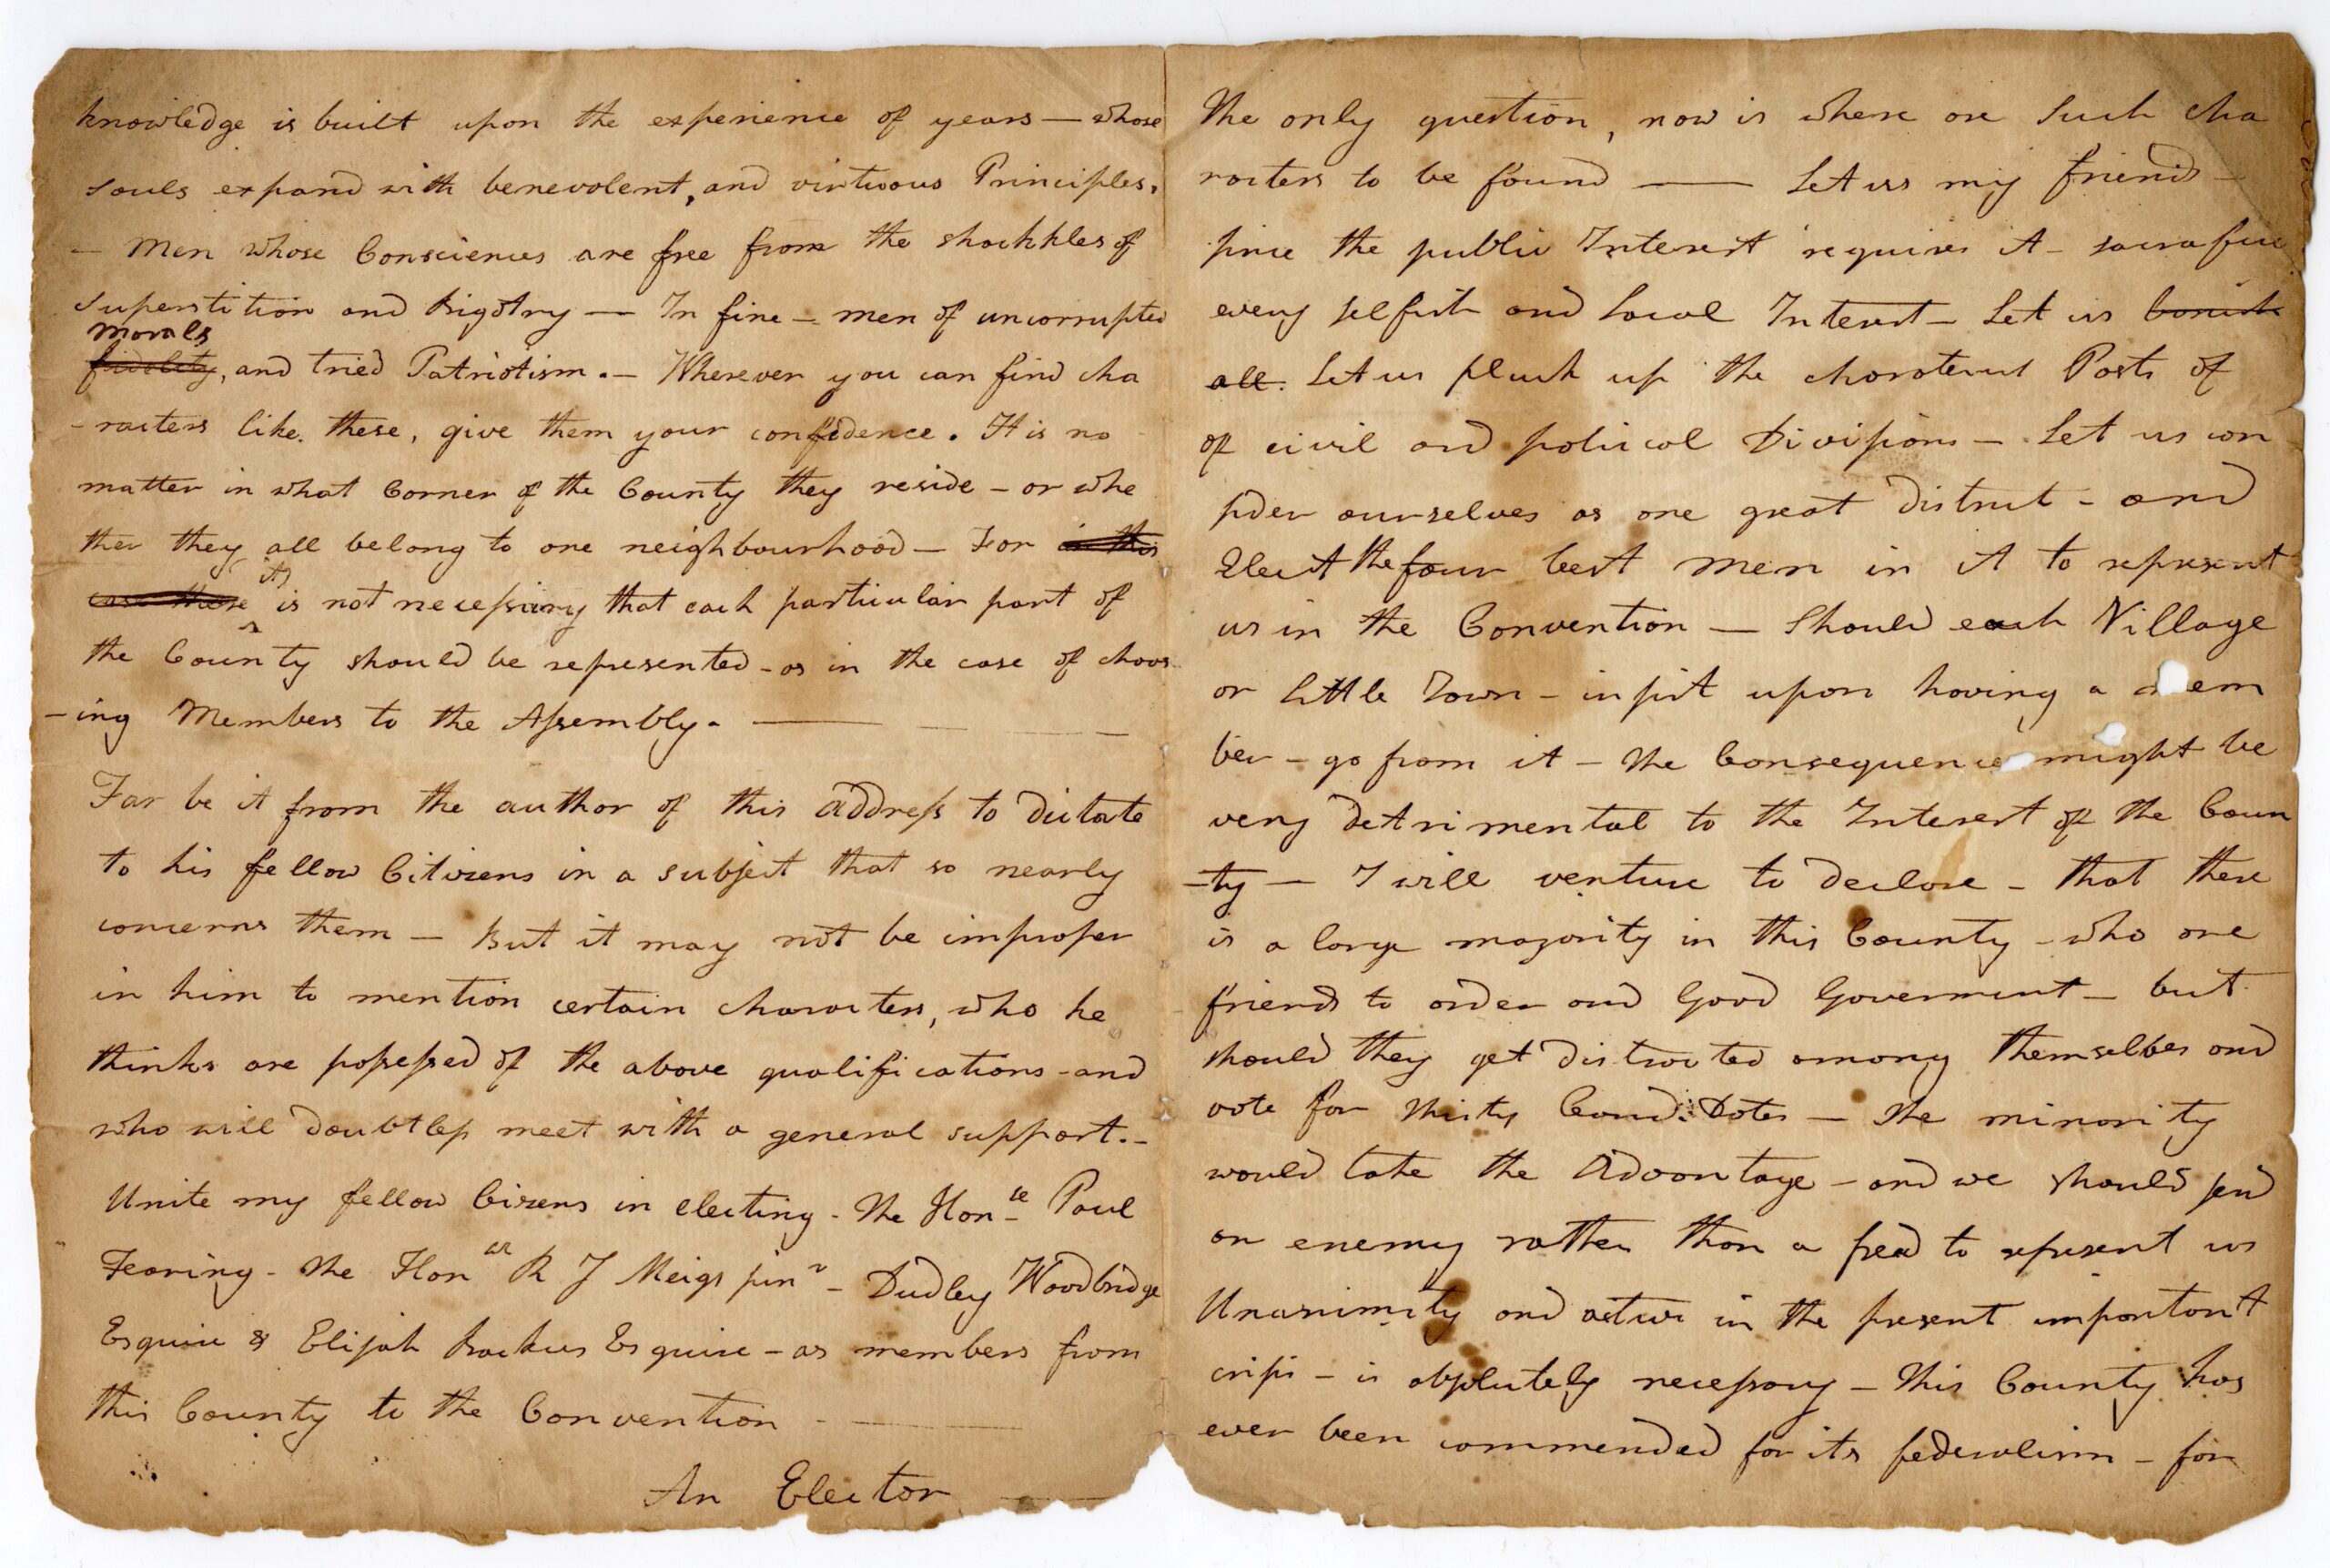 knowledge is built upon the experience of years — whose
souls expand with benevolent, and virtuous Principles.
— Men whose Consciences are free from the shackkles of
superstition and Bigotry — In fine — men of uncorrupted
morals
fidelity, and tried Patriotism. — Wherever you can find cha
-racters like these, give them your confidence. It is no
matter in what Corner of the County they reside - or whe
ther they all belong to one neighbourhood — For in this
case there it is not necessary that each particular part of
the County should be represented - as in the case of choos
-ing Members to the Assembly. —
Far be it from the author of this address to dictate
to his fellow Citizens in a subject that so nearly
concerns them — But it may not be improper
in him to mention certain characters, who he
thinks are possessed of the above qualifications - and
who will doubtless meet with a general support. -
Unite my fellow Cizens in electing - The Honle Paul
Fearing - The Honle R J Meigs junr - Dudley Woodbridge
Esquire & Elijah Backus Esquire - as members from
this County to the Convention -
An Elector
The only question, now is where are such cha
racters to be found — Let us my friends -
since the public Interest requires it - sacrafice
every selfish and local Interest - Let us banish
all. Let us pluck up the Posts of
of civil and political Divisions - Let us con
sider ourselves as one great District - and
Elect the four best men in it to represent
us in the Convention — Should each Village
or little Town - insist upon having a mem
ber - go from it - The Consequence might be
very detrimental to the Interest of the Coun
-ty — I will venture to declare - that there
is a large majority in this County - who are
friends to order and Good Goverment - but
should they get distracted among themselves and
vote for thirty Candidates — The minority
would take the Advantage - and we should send
an enemy rather than a fread to represent us
Unanimity and in the present important
crisis - is absolutely necessary - This County has
ever been commended for its federalism - for